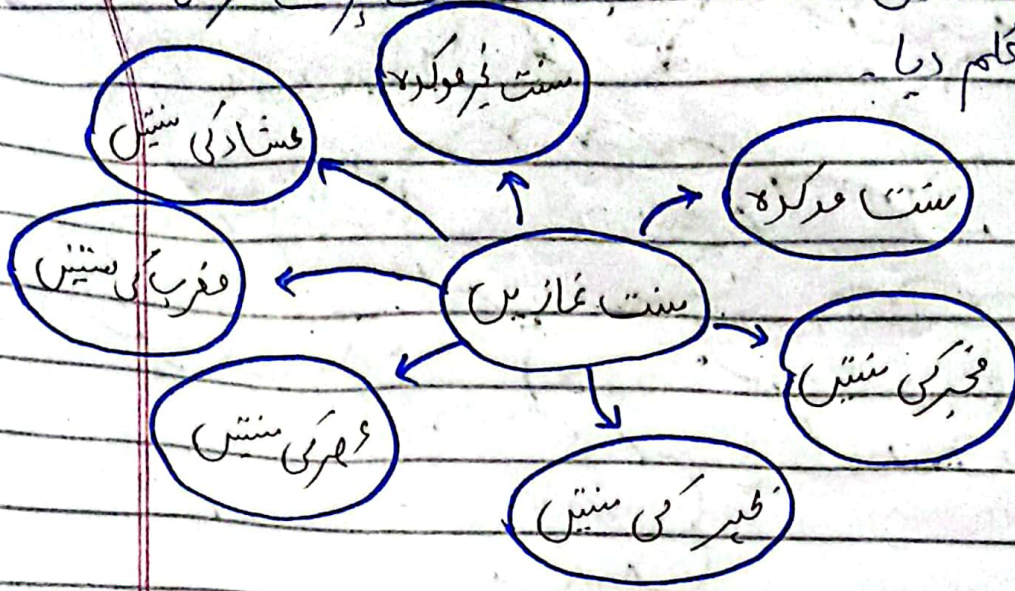 حکم دیا۔
سنت غیر موکدہ
عشاء کی سنتیں
سنت موکدہ
مغرب کی سنتیں
سنت نمازیں
فجر کی سنتیں
عصر کی سنتیں
ظہر کی سنتیں